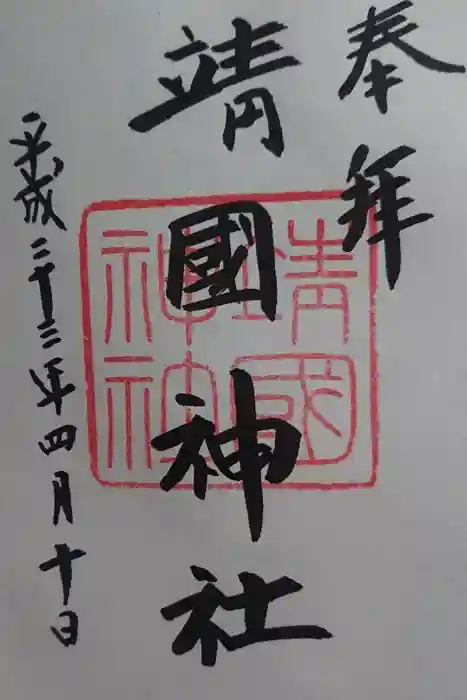 奉拜
靖國神社
靖國
神社
平成二十三年四月十日